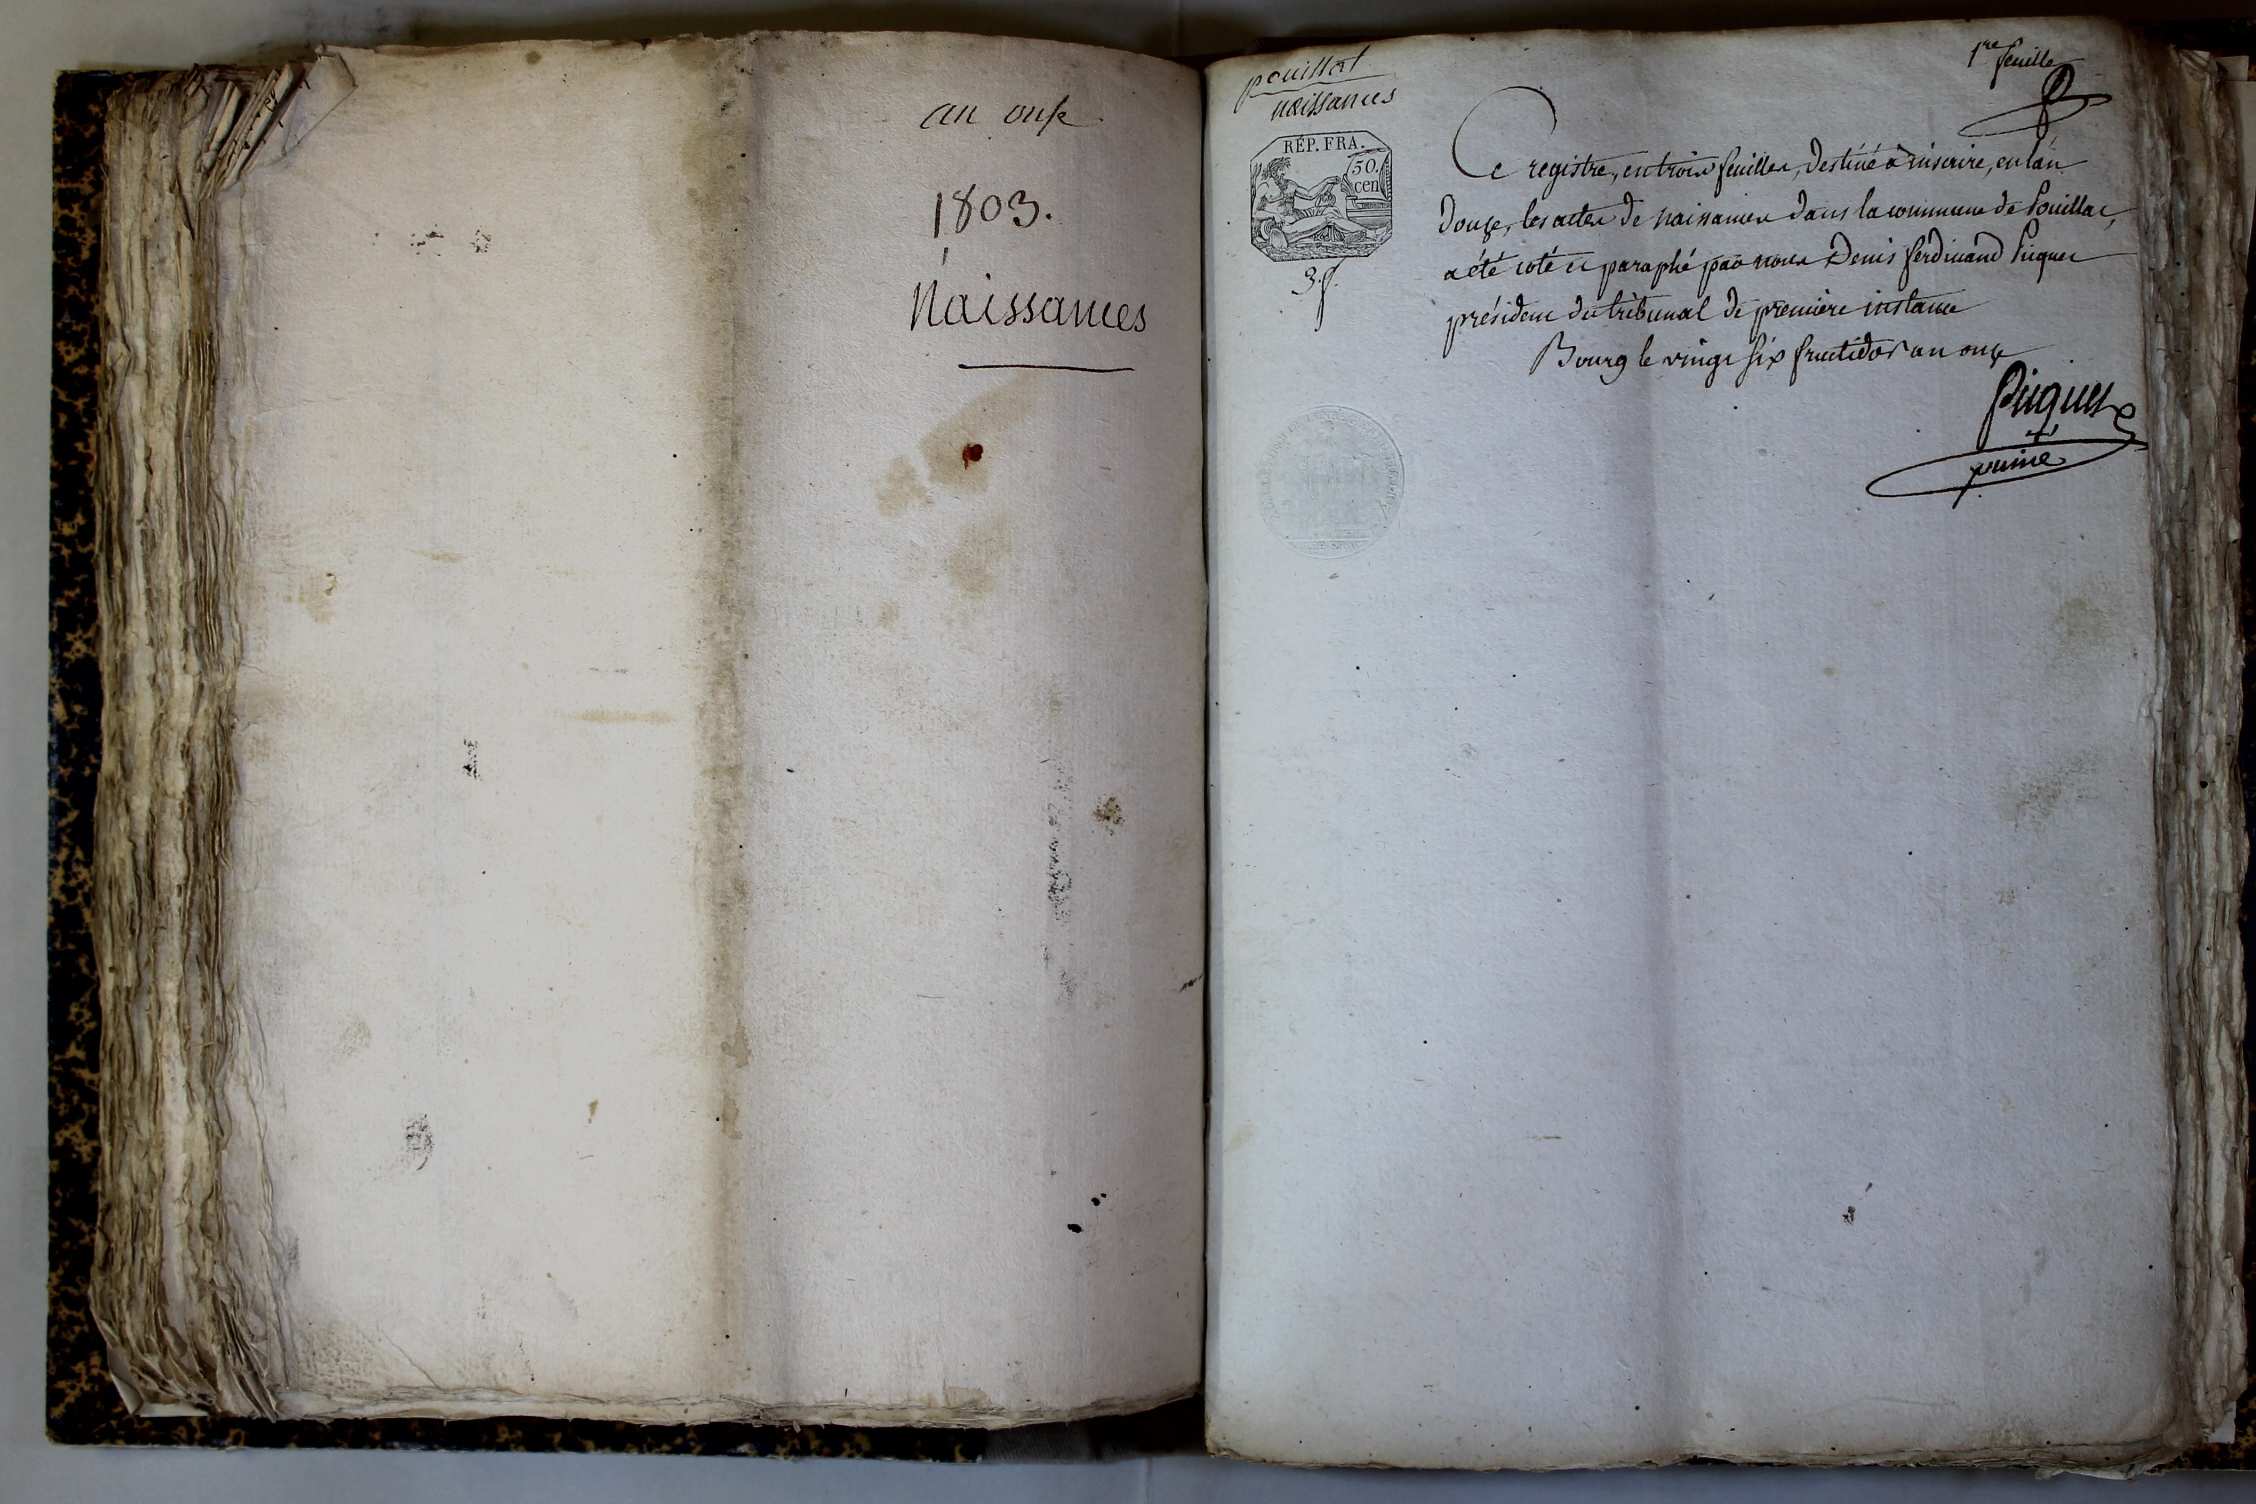 an onze
1803.
Naissances
pouillat
naissances
1re feuille
RÉP. FRA.
50.
cen
3 f.
Ce registre, en trois feuilles, destiné à inscrire, en l'an
douze, les actes de naissances dans la commune de Pouillat,
a été coté et paraphé par nous Denis ferdinand Picquet
président du tribunal de première instance
Bourg le vingt six fructidor an onze
Picquet